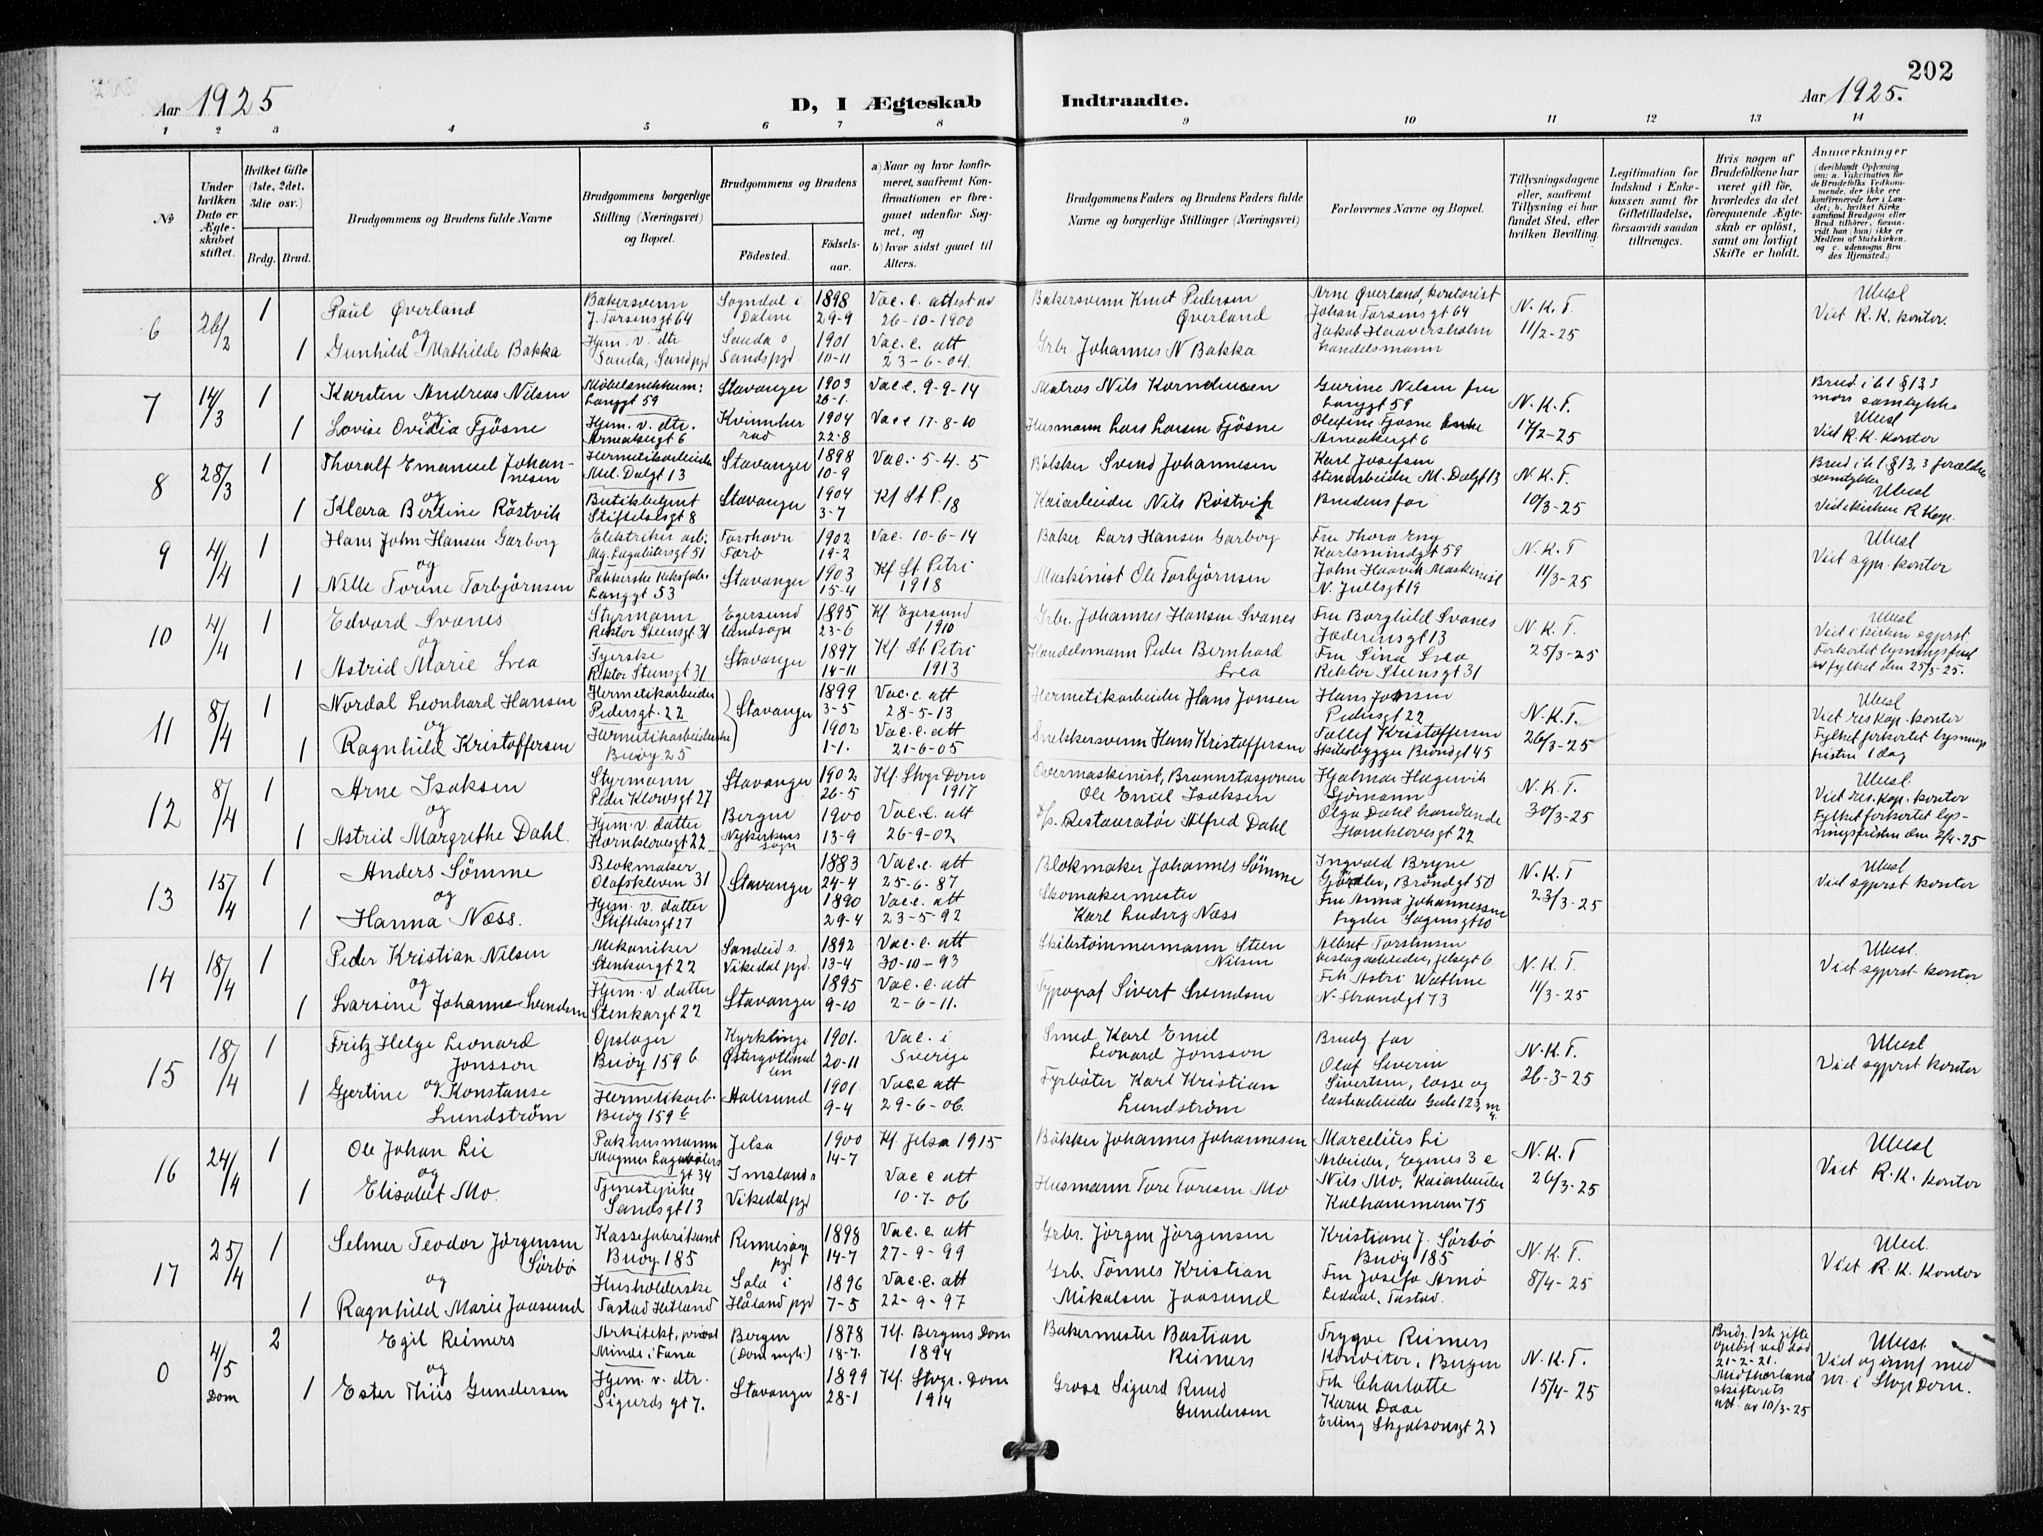 202
Aar 1925
D, I Ægteskab
Indtraadte.
Aar 1925.
1 2 3 4 5 6 7 8 9 10 11 12 13 14
No
Under hvilken Dato er Ægteskabet stiftet.
Hvilket Gifte (1ste, 2det, 3die osv.)
Brdg. Brud.
Brudgommens og Brudens fulde Navne
Brudgommens borgerlige Stilling (Næringsvei) og Bopæl.
Brudgommens og Brudens
Födested.
Födsels-aar.
a) Naar og hvor konfirmeret, saafremt Konfirmationen er foregaaet udenfor Sognet, og
b) hvor sidst gaaet til Alters.
Brudgommens Faders og Brudens Faders fulde Navne og borgerlige Stillinger (Næringsvei)
Forlovernes Navne og Bopæl.
Tillysningsdagene eller, saafremt Tillysning ei har fundet Sted, efter hvilken Bevilling.
Legitimation for Indskud i Enkekassen samt for Giftetilladelse, forsaavidt saadan tiltrænges.
Hvis nogen af Brudefolkene har været gift för, hvorledes da det foregaaende Ægteskab er oplöst, samt om lovligt Skifte er holdt.
Anmærkninger
(deriblandt Oplysning om: a. Vakcination för de Brudefolks Vedkommende, der ikke ere konfirmerede her i Landet; b. hvilket Kirkesamfund Brudgom eller Brud tilhörer, forsaavidt han (hun) ikke er Medlem af Statskirken, og c. udensogns Brudes Hjemsted.)
6 26/2 1 Paul Øverland
og
1 Gunhild Mathilde Bakka
Bakersvenn
J. Torsensgt 64
Hjem. v. dtr
Sauda, Sandpgd
Sogndal i Dalene
1898
29-9
Vac. e. attest av
26-10-1900
Sauda s
Sandspgd.
1901
10-11
Vac. e. att
23-6-04.
Bakersvenn Knut Pedersen
Øverland
Grbr Johannes N Bakka
Arne Øverland, kontorist
Johan Torsensgt 64
Jakob Haaversholm
handelsmann
N.K.T.
11/2-25
Ubesl
Viet R.K. kontor.
7 14/3 1 Karsten Andreas Nilsen
og
1 Lovise Ovidia Fjøsne
Langgt 59
Hjem. v. dtr.
Arneakergt 6
Stavanger
1903
26-1.
Vac e. 9-9-14
Kvinnherrad
1904
22-8
Vac e 17-8-10
Matros Nils Korneliusen
Husmann Lars Larsen Fjøsne
Gurine Nilsen fru
Langgt 59
Olefine Fjøsne Enke
Arneakergt 6
N.K.T.
17/2-25
Brud i h t § 13, 3
mors samtykke
Ubesl
Viet R.K. kontor
8 28/3 1 Thoralf Emanuel Johannesen
og
1 Klara Bertine Röstvik
Hermetikarbeider
Mel. Dalgt 13
Butikbetjent
Stiftelsesgt 8
Stavanger
1898
10-9
Vac. 5-4. 5
Stavanger
1904
3-7
Kf St P. 18
Bølsker Svend Johannesen
Kaiarbeider Nils Røstvik
Karl Josefsen
Stenarbeider M. Dalgt 13
Brudens far
N.K.T.
10/3-25
Brud i h t § 13, 3 forældres
samtykke
Ubesl
Viet i kirken R Kap.
9 4/4 1 Hans John Hansen Garborg
og
1 Nille Torine Torbjørnsen
Elektriker arb.
Mg. Lagabötersgt 51
Langgt 53
Torshavn
Færö
1902
19-2
Vac. 10-6-14
Stavanger
1903
15-4
Kf St Petri
1918
Baker Lars Hansen Garborg
Maskinist Ole Torbjørnsen
Fru Thora Eng
Karlsmindegt 59
John Haavik Maskinist
N. Juelsgt 19
N.K.T
11/3-25
Ubesl
Viet sgpr. kontor
10 4/4 1 Edvard Svanes
og
1 Astrid Marie Svea
Styrmann
Rektor Steensgt 31
Syerske
Rektor Steensgt 31
Egersund
landsogn
1895
23-6
Kf Egersund
1910
Stavanger
1897
14-11
Kf. St Petri
1913
Grbr. Johannes Hansen Svanes
Handelsmann Peder Bernhard
Svea
Fru Borghild Svanes
Jæderensgt 13
Fru Sina Svea
Rektor Steensgt 31
N.K.T.
25/3-25
Ubesl
Viet i kirken sgprst.
Forkortet lysningsfrist
av fylket den 25/3-25.
11 8/4 1 Nordal Leonhard Hansen
og
1 Ragnhild Kristoffersen
Hermetikarbeider
Pedersgt. 22
Hermetikarbeiderske
Buøy 25
Stavanger
1899
3-5
Vac. e. att
28-5-13
1902
1-1.
Vac. e. att
21-6-05
Hermetikarbeider Hans Jonsen
Snekkersvenn Hans Kristoffersen
Hans Jonsen
Pedersgt 22
Tallef Kristoffersen
Skibsbygger Brøndgt 45
N.K.T.
26/3-25
Ubesl
Viet res kap. kontor
Fylket forkortet lysnings
fristen 1 dag
12 8/4 1 Arne Isaksen
og
1 Astrid Margrethe Dahl.
Styrmann
Peder Klowsgt 27
Hjem. v. datter
Hornklovesgt 22
Stavanger
1902
26-5
Kf. Stvgr Dom
1917
Bergen
Nykirkens
sogn
1900
13-9
Vac. e. att
26-9-02
Overmaskinist, Brannstasjonen
Ole Emil Isaksen
Fhv. Restauratør Alfred Dahl
Hjalmar Hagevik
Sjømann
Olga Dahl handlende
Hornklovesgt 22
N.K.T.
30/3-25
Ubesl
Viet res. kap. kontor
Fylket forkortet lysningsfristen den 2/4-25
13 15/4 1 Anders Sømme
og
1 Hanna Næss.
Blokmaker
Olafskleven 31
Hjem. v. datter
Stiftelsesgt 27
Stavanger
1883
24-4
Vac. e. att
25-6-87
1890
29-4
Vac. e. att
23-5-92
Blokmaker Johannes Sømme
Skomakermester
Karl Ludvig Næss
Ingvald Bryne
Gjørtler, Brøndgt 50
Fru Anna Johannessen
Lyder Sagensgt 10
N.K.T
23/3-25
Ubesl
Viet sgprst kontor
14 18/4 1 Peder Kristian Nilsen
og
1 Larsine Johanne Svendsen
Mekaniker
Stenkargt 22
Hjem. v. datter
Stenkargt 22
Sandeid s.
Vikedal pgd.
1892
13-4
Vac. e. att
30-10-93
Stavanger
1895
9-10
Vac. e. att
2-6-11.
Skibstømmermann Steen
Nilsen
Typograf Sivert Svendsen
Albert Torstensen
beslagarbeider, Jelsegt 6
Frk Astri Wathne
N. Strandgt 73
N.K.T.
11/3-25
Ubesl
Viet sgprst kontor
15 18/4 1 Fritz Helge Leonard
Jonsson
og
1 Gjertine Konstanse
Lundstrøm
Opslager
Buøy 159 b
Hermetikarb.
Buøy 159 b
Kyrklinge
Østergotland
len
1901.
20-11
Vac. i
Sverige
Aalesund
1901
9-4
Vac. e att
29-6-06.
Smed Karl Emil
Leonard Jonsson
Fyrbøter Karl Kristian
Lundstrøm
Brudg. far
Olaf Severin
Sivertsen, losse og
lastearbeider Gade 123, nr
4.
N.K.T.
26-3-25
Ubesl
Viet sgprst kontor
16 24/4 1 Ole Johan Lie
og
1 Elisabet Mo.
Pakhusmann
Magnus Lagabøters
gt 34
Tjenestepike
Sandsgt 13
Jelsa
1900
14-7
Kf. Jelsa 1915
Imslands
Vikedal pgd
Vac e att
10-7-06
Bøkker Johannes Johannesen
Husmann Tore Toresen Mo
Marcelius Li
Arbeider, Egenes 3 e
Nils Mo, Kaiarbeider
Kalhammeren 75
N.K.T
26/3-25
Ubesl
Viet R.K. kontor
17 25/4 1 Selmer Teodor Jørgensen
Sørbø
og
1 Ragnhild Marie Jaasund
Kassefabrikant
Buøy 185
Husholderske
Tastad Hetland
Rennesøy
pgd
1898
14-7
Vac. e. att
27-9-99
Sola i
Håland pgd
1896
7-5
Vac. e. att
22-9-97
Grbr. Jörgen Jörgensen
Grb. Tönnes Kristian
Mikalsen Jaasund
Kristiane J. Sørbø
Buøy 185
Fru Josefa Arnø
Ledaal, Tastad.
N.K.T.
8/4-25
Ubesl.
Viet R.K. Kontor
0 4/5
Dom
2 Egil Reimers
og
1 Ester Thiis Gundersen
Arkitekt, privat
Minde i Fana
Hjem. v. dtr.
Sigurds gt 7.
Bergen
(Dom mgh.)
1878
18-7.
Kf. Bergens Dom
1894
Stavanger
1899
28-1
Kf. Stvgr. Dom
1914
Bakermester Bastian
Reimers
Gross Sigurd Ruud
Gundersen
Trygve Reimers
Konditor, Bergen
Frk Charlotte
Karen Daae
Erling Skjalsonsgt 23
N.K.T.
15/4-25
Brudg. 1ste gifte
opløst ved død
21-2-21.
Midthorland
skifterets
att. av 10/3-25
Ubesl.
Viet og innf med
nr. i Stvgr Dom.